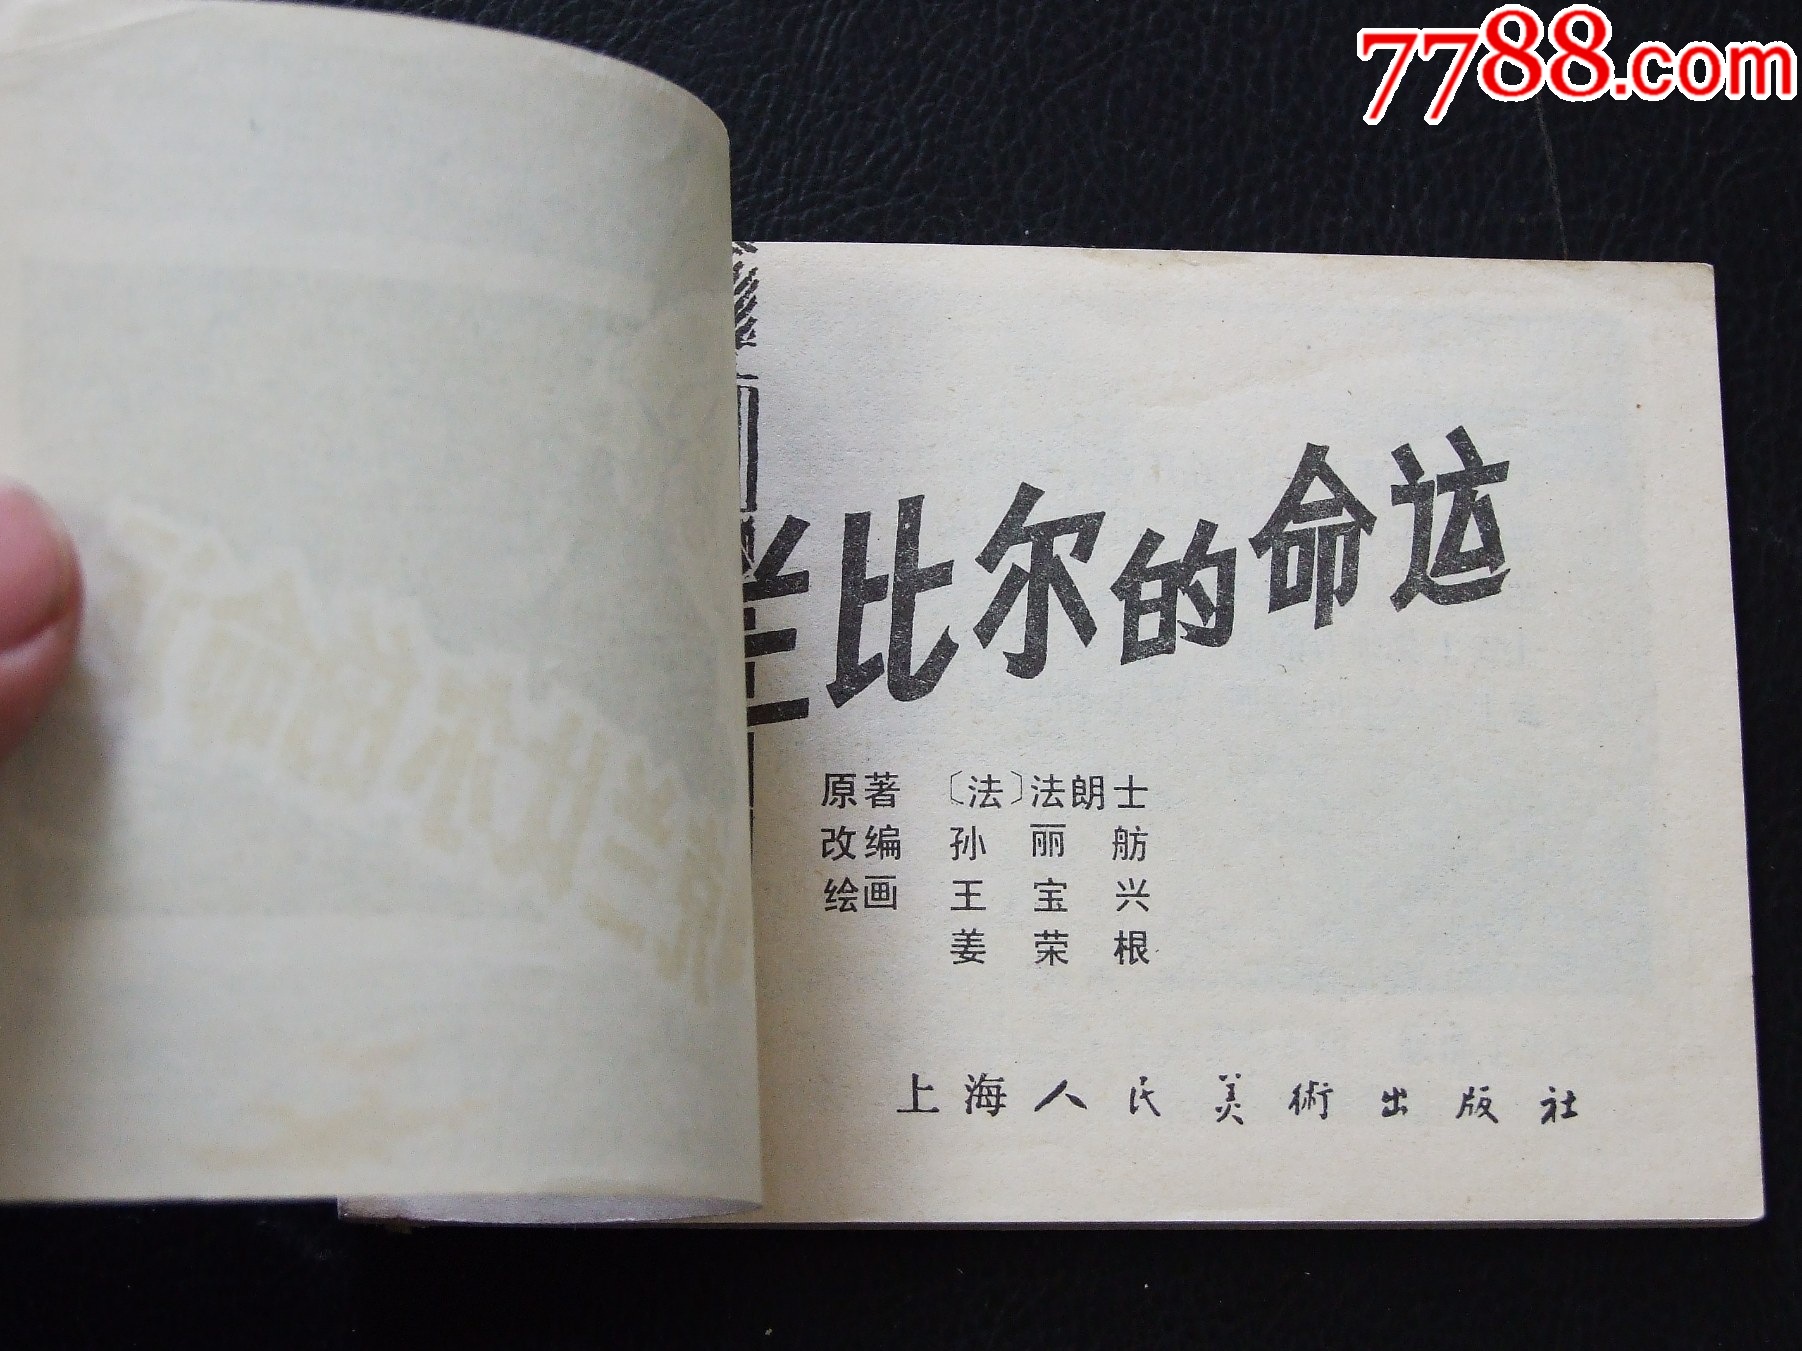 7788.com
兰比尔的命运
原著 〔法〕法朗士
改编 孙丽舫
绘画 王宝兴
姜荣根
上海人民美術出版社